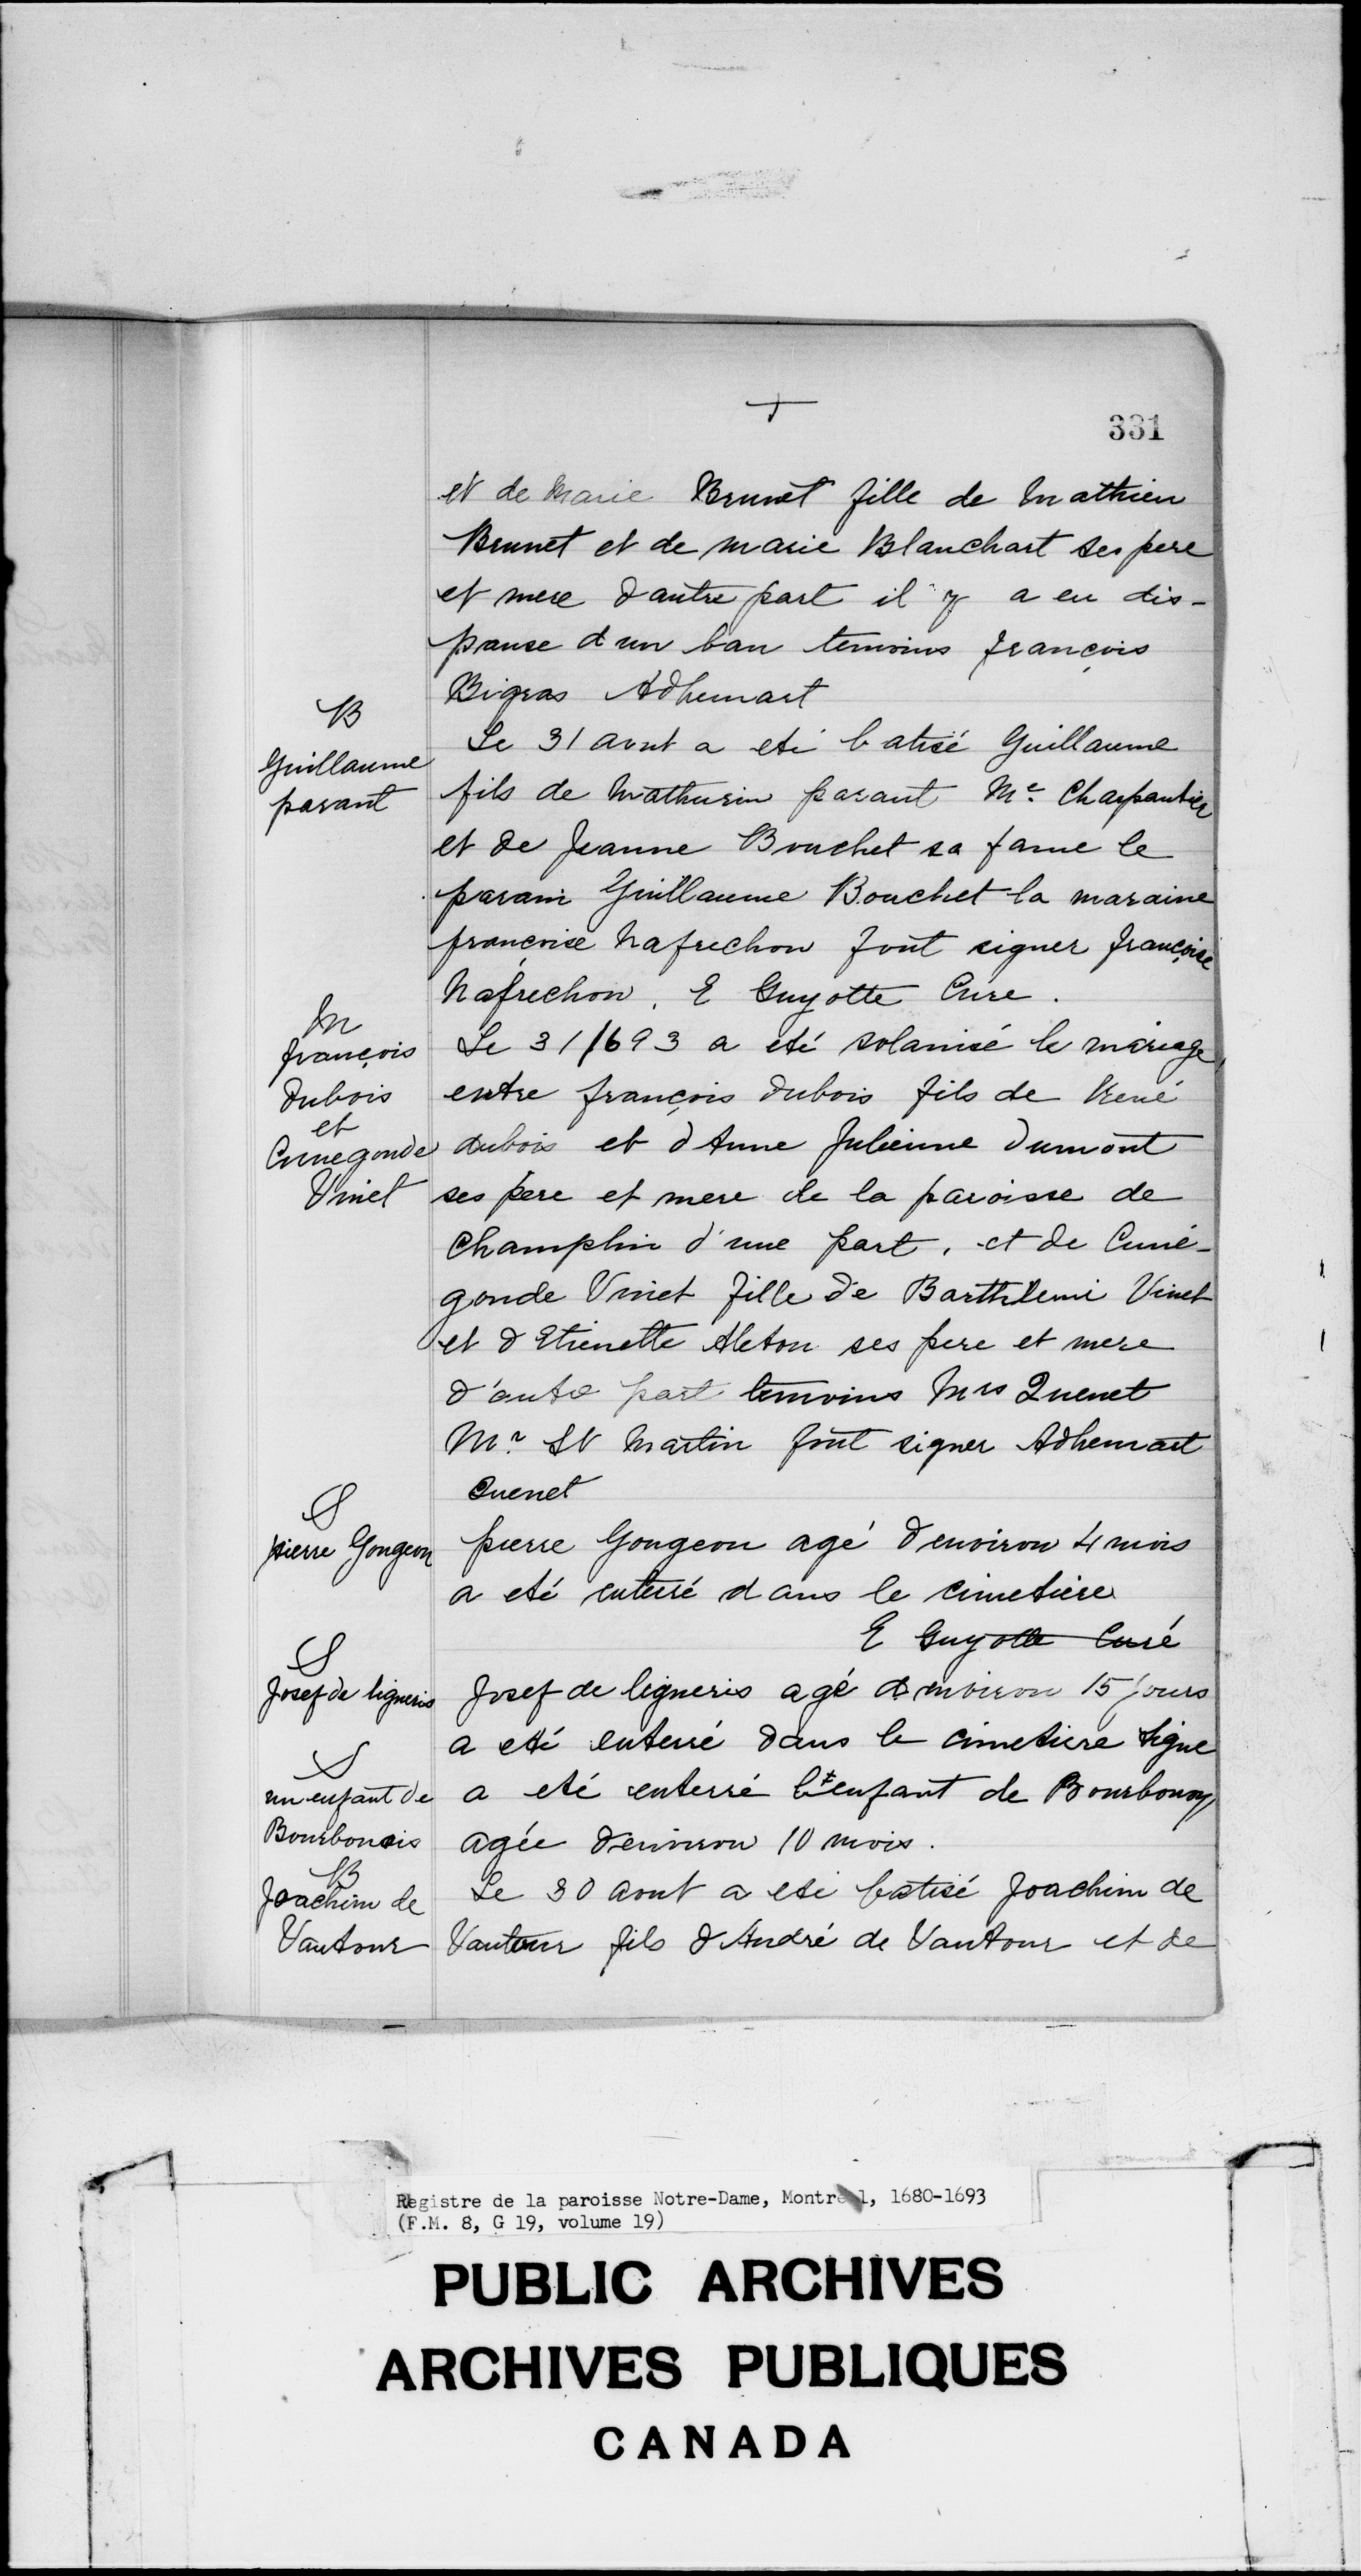 331
et de Marie Brunet fille de Mathieu
Brunet et de marie Blanchart ses pere
et mere d'autre part il y a eu dis-
pause d'un ban temoins françois
Bigras Adhemart
B
Guillaume
parant
Le 31 aout a eté batisé Guillaume
fils de Mathurin parant Me Charpantier
et de Jeanne Bouchet sa fame le
parain Guillaume Bouchet la maraine
françoise Nafrechon font signer françoise
Nafrechon. E Guyotte Cure.
M
françois
dubois
et
Cunegonde
Vinet
Le 31/693 a eté solanisé le mariage
entre françois dubois fils de René
dubois et d'Anne Julienne dumont
ses pere et mere de la paroisse de
Champlin d'une part, et de Cuné-
gonde Vinet fille de Barthlemi Vinet
et d'Etienette Aleton ses pere et mere
d'autre part temoins Mrs Quenet
Mr St Martin font signer Adhemart
Quenet
S
pierre Gongeon
pierre Gongeon agé d'environ 4 mois
a eté enterré dans le cimetiere
E Guyotte Curé
S
Josef de ligneris
Josef de ligneris agé d'environ 15 jours
a eté enterré dans le cimetiere signe
S
un enfant de
Bourbonois
a eté enterré l'enfant de Bourbonoy
agée d'environ 10 mois.
B
Joachim de
Vautour
Le 30 aout a eté batisé Joachim de
Vautour fils d'André de Vautour et de
Registre de la paroisse Notre-Dame, Montréal, 1680-1693
(F.M. 8, G 19, volume 19)
PUBLIC ARCHIVES
ARCHIVES PUBLIQUES
CANADA